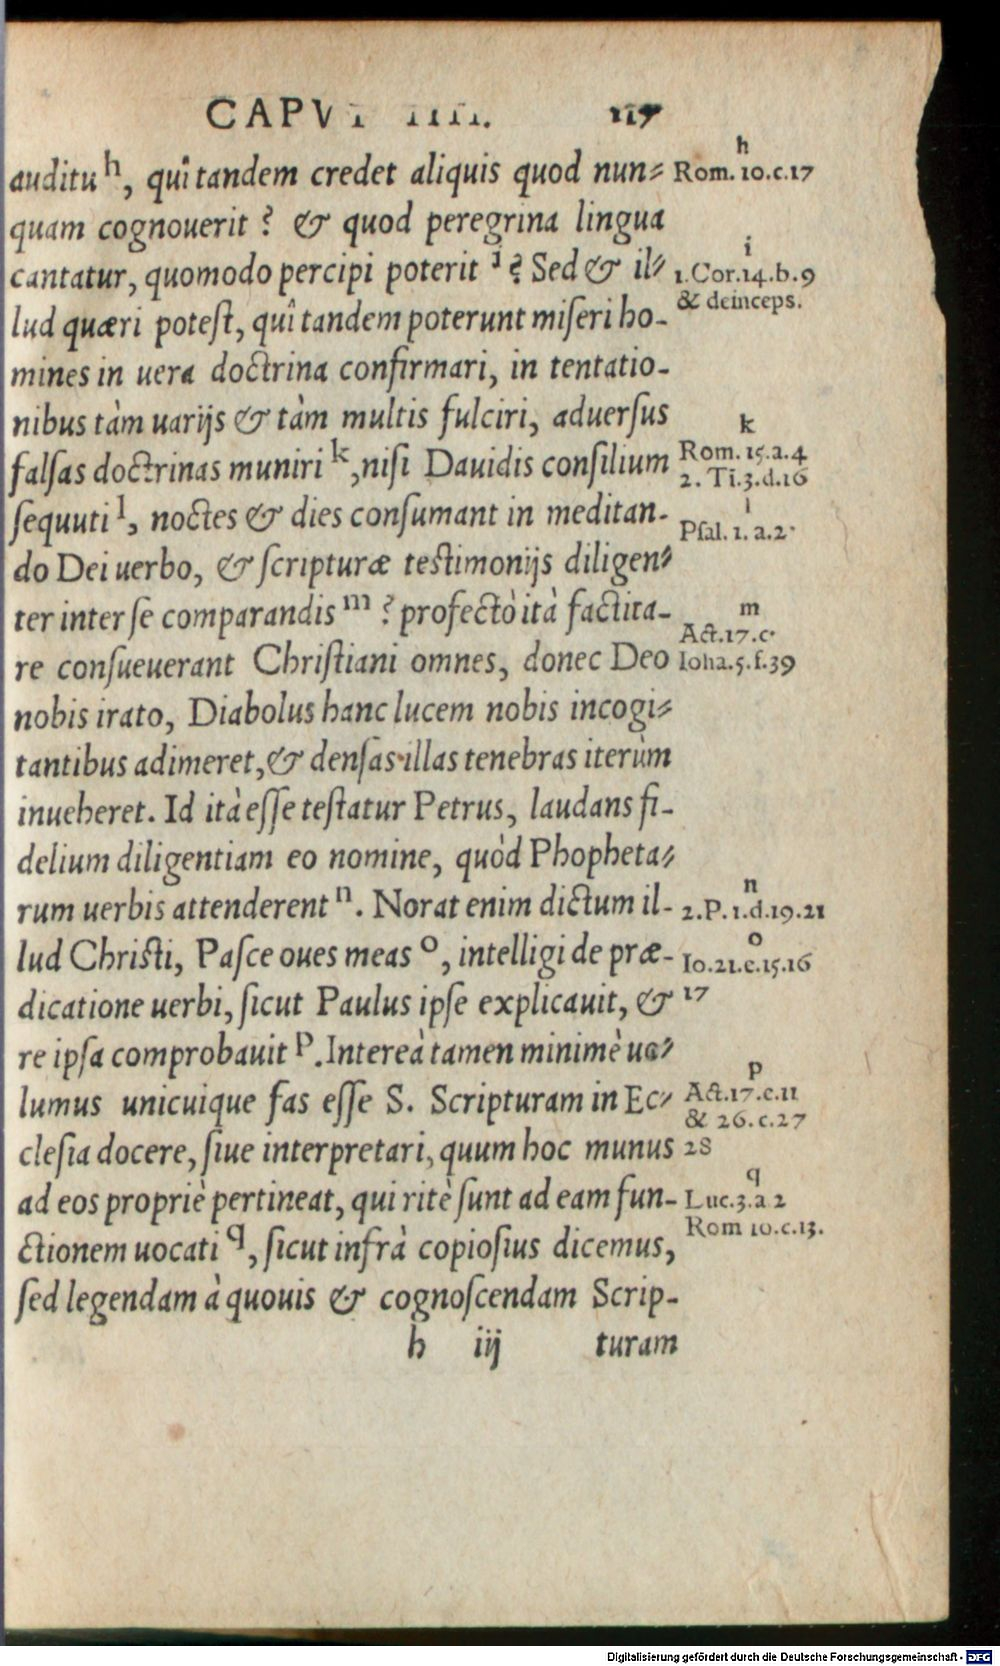 CAPVT IIII. 117
auditu h, quî tandem credet aliquis quod nun-
quam cognouerit ? & quod peregrina lingua
cantatur, quomodo percipi poterit i ? Sed & il-
lud quæri potest, quî tandem poterunt miseri ho-
mines in uera doctrina confirmari, in tentatio-
nibus tàm uarijs & tàm multis fulciri, aduersus
falsas doctrinas muniri k, nisi Dauidis consilium
sequuti l, noctes & dies consumant in meditan-
do Dei uerbo, & scripturæ testimonijs diligen-
ter inter se comparandis m ? profectò ità factita-
re consueuerant Christiani omnes, donec Deo
nobis irato, Diabolus hanc lucem nobis incogi-
tantibus adimeret, & densas illas tenebras iterùm
inueheret. Id ità esse testatur Petrus, laudans fi-
delium diligentiam eo nomine, quòd Phopheta-
rum uerbis attenderent n. Norat enim dictum il-
lud Christi, Pasce oues meas o, intelligi de præ-
dicatione uerbi, sicut Paulus ipse explicauit, &
re ipsa comprobauit p. Intereà tamen minimè uo-
lumus unicuique fas esse S. Scripturam in Ec-
clesia docere, siue interpretari, quum hoc munus
ad eos propriè pertineat, qui ritè sunt ad eam fun-
ctionem uocati q, sicut infrà copiosius dicemus,
sed legendam à quouis & cognoscendam Scrip-
h iij turam
h
Rom. 10.c.17
i
1.Cor.14.b.9
& deinceps.
k
Rom. 15.a.4
2. Ti.3.d.16
l
Psal. 1. a.2.
m
Act.17.c.
Ioha.5.f.39
n
2.P.1.d.19.21
o
Io.21.e.15.16
17
p
Act.17.c.11
& 26.c.27
28
q
Luc.3.a 2
Rom 10.c.13.
Digitalisierung gefördert durch die Deutsche Forschungsgemeinschaft - DFG